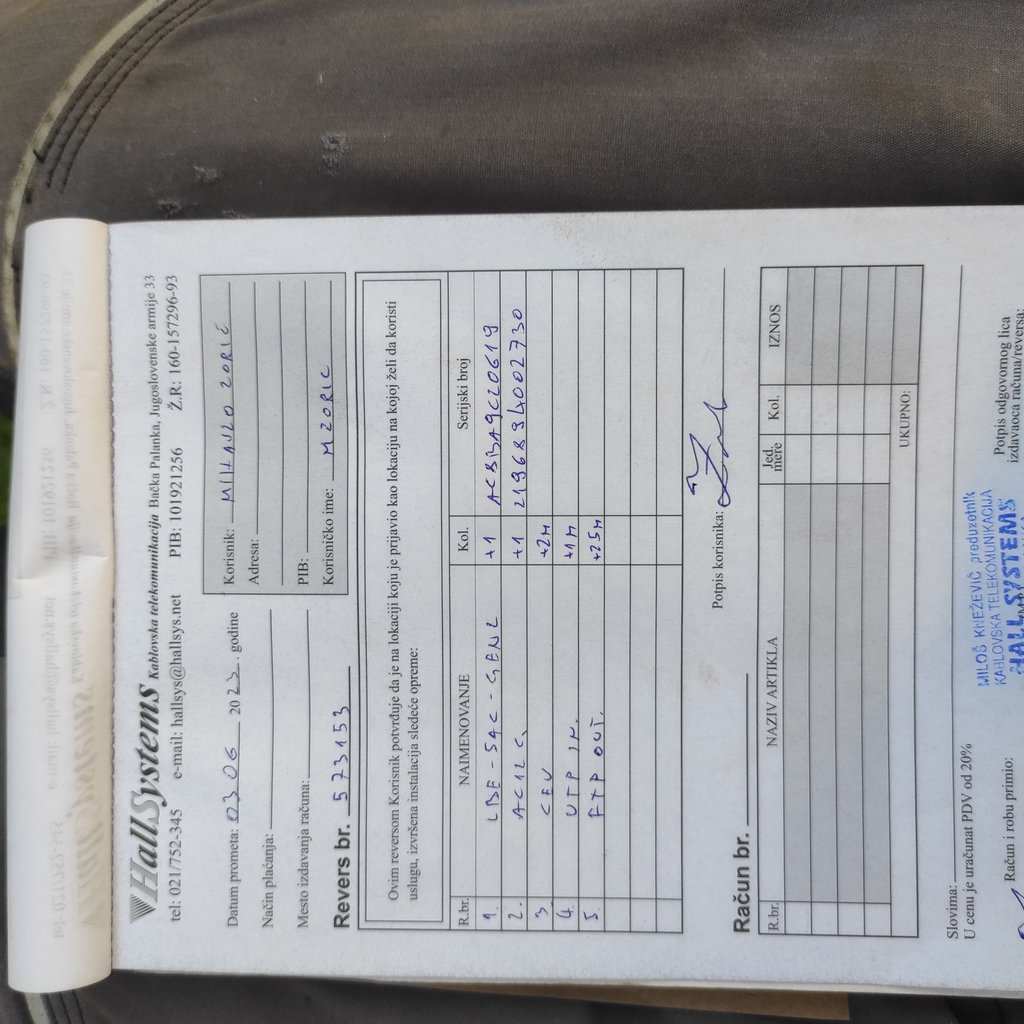 HallSystems Kablovska telekomunikacija Bačka Palanka, Jugoslovenske armije 33
tel: 021/752-345 e-mail: hallsys@hallsys.net PIB: 101921256 Ž.R: 160-157296-93
Datum prometa: 03.06 2023. godine
Način plaćanja:
Mesto izdavanja računa:
Korisnik: MILHAJLO ZORIĆ
Adresa:
PIB:
Korisničko ime: MZORIC
Revers br. 573153
Ovim reversom Korisnik potvrđuje da je na lokaciji koju je prijavio kao lokaciju na kojoj želi da koristi
uslugu, izvršena instalacija sledeće opreme:
R.br. NAIMENOVANJE Kol. Serijski broj
1. LBE-5AC-GEN2 +1 AC8BA9C20619
2. AC12C +1 2196894002730
3. CEV +2m
4. UTP IN. +1m
5. FTP OUT. +25m
Potpis korisnika:
Račun br.
R.br. NAZIV ARTIKLA Jed. mere Kol. IZNOS
UKUPNO:
Slovima:
U cenu je uračunat PDV od 20%
Račun i robu primio:
MILOŠ KNEŽEVIĆ preduzetnik
KABLOVSKA TELEKOMUNIKACIJA
HALL SYSTEMS
Potpis odgovornog lica
izdavaoca računa/reversa: